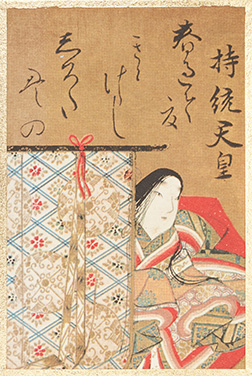 持統天皇
春過て夏
きにけらし
しろた
への